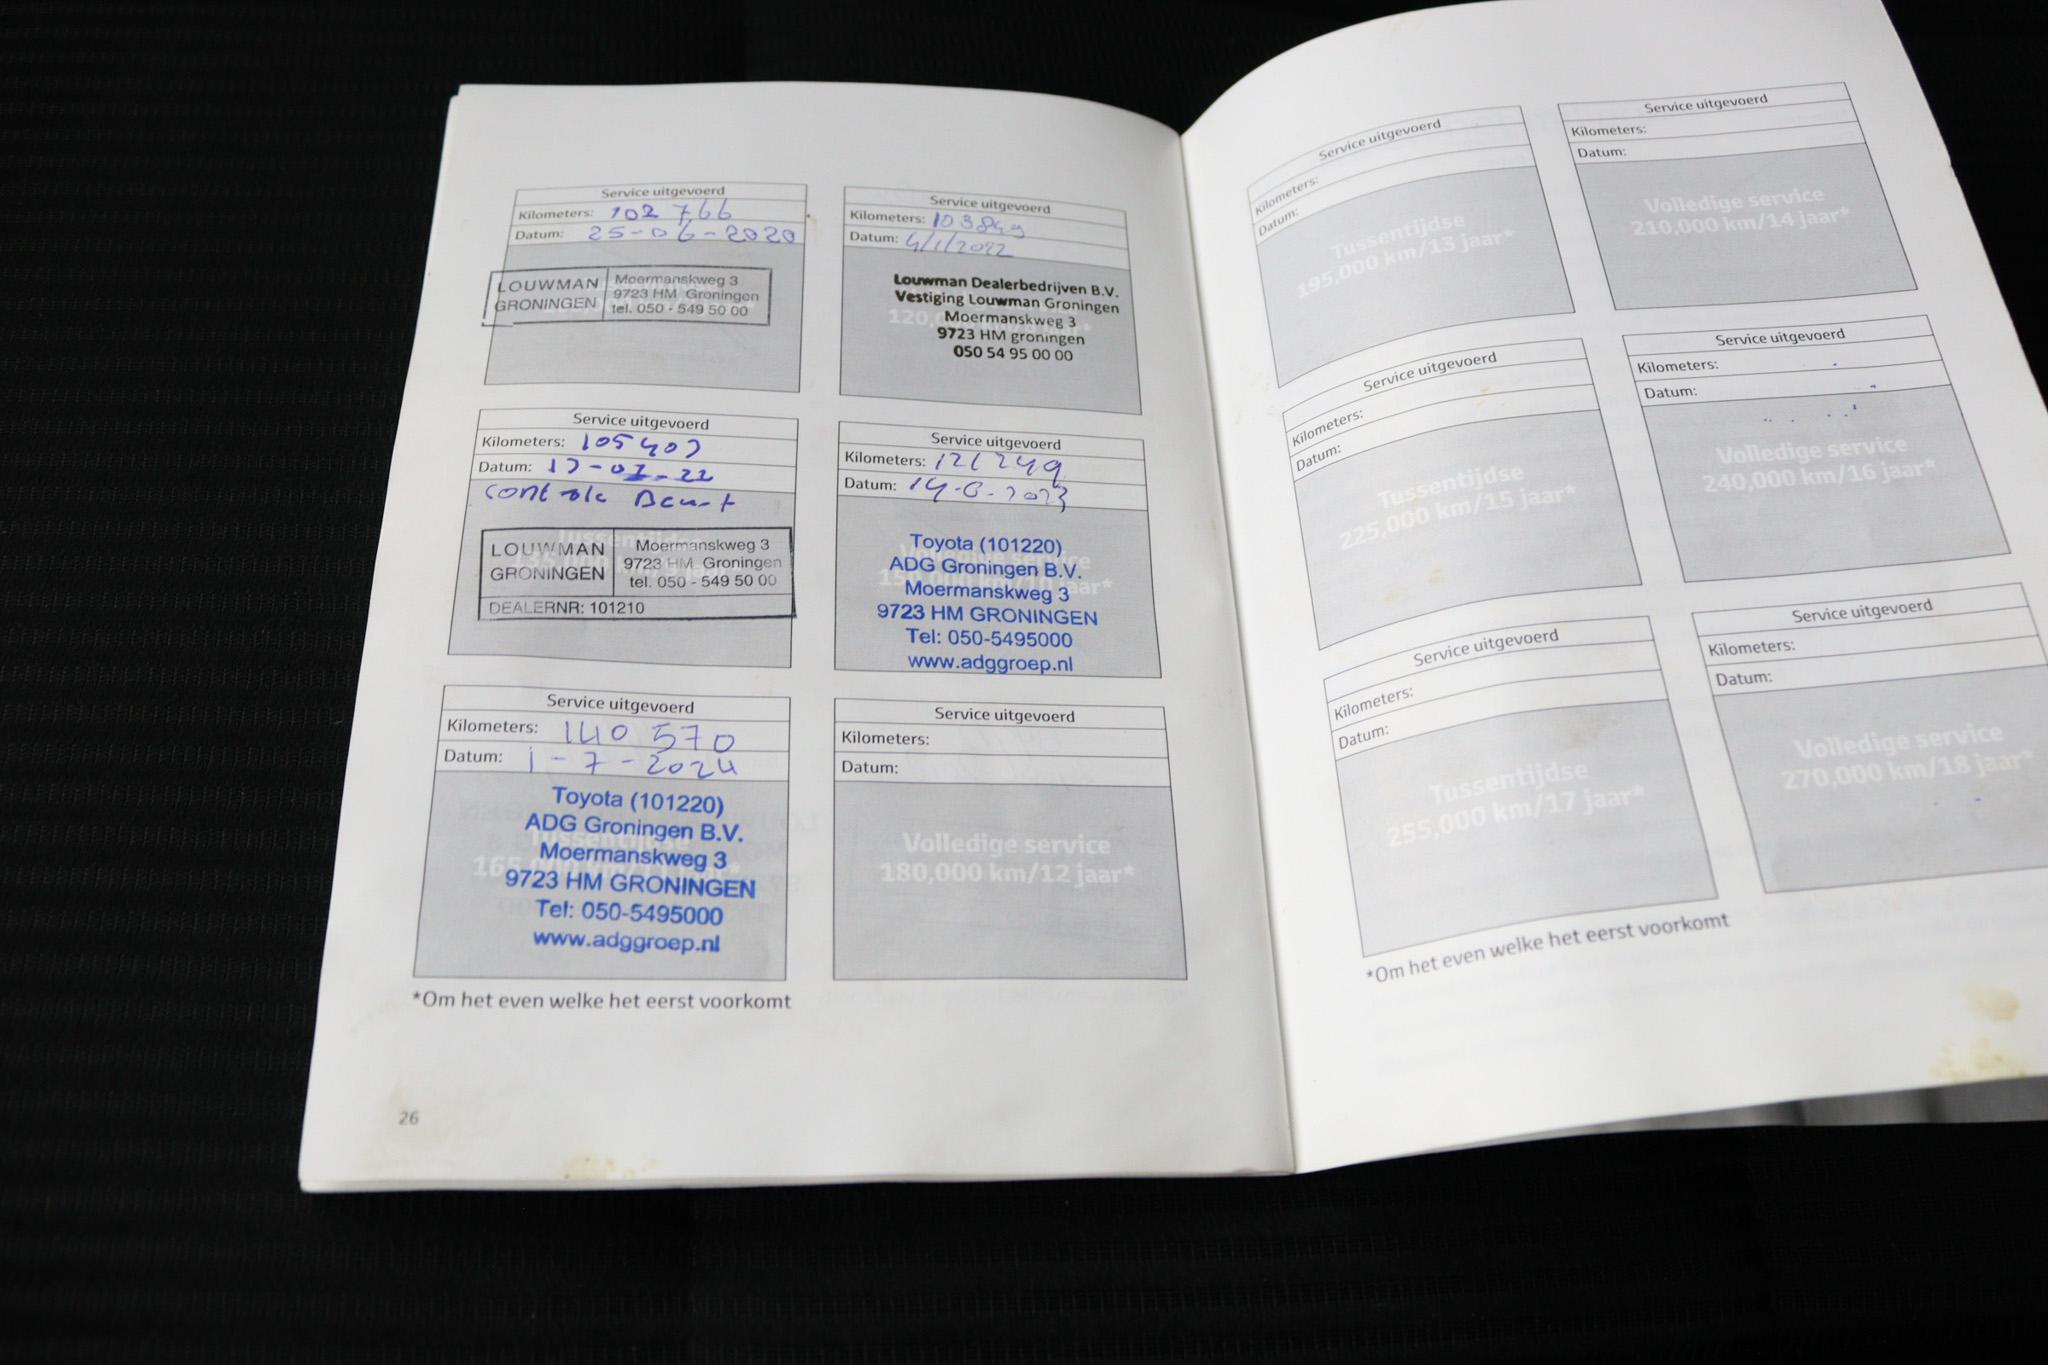 Service uitgevoerd
Kilometers: 102 766
Datum: 25-06-2020
LOUWMAN GRONINGEN
Moermanskweg 3
9723 HM Groningen
tel. 050 - 549 50 00
Service uitgevoerd
Kilometers: 103849
Datum: 4/1/2022
Louwman Dealerbedrijven B.V.
Vestiging Louwman Groningen
Moermanskweg 3
9723 HM groningen
050 54 95 00 00
Service uitgevoerd
Kilometers: 105407
Datum:
Controle Beurt
LOUWMAN GRONINGEN
Moermanskweg 3
9723 HM Groningen
tel. 050 - 549 50 00
DEALERNR: 101210
Service uitgevoerd
Kilometers: 121249
Datum:
Toyota (101220)
ADG Groningen B.V.
Moermanskweg 3
9723 HM GRONINGEN
Tel: 050-5495000
www.adggroep.nl
Service uitgevoerd
Kilometers: 140 570
Datum: 1-7-2024
Toyota (101220)
ADG Groningen B.V.
Moermanskweg 3
9723 HM GRONINGEN
Tel: 050-5495000
www.adggroep.nl
Service uitgevoerd
Kilometers:
Datum:
Volledige service
180,000 km/12 jaar*
*Om het even welke het eerst voorkomt
26
Service uitgevoerd
Kilometers:
Datum:
Tussentijdse
195,000 km/13 jaar*
Service uitgevoerd
Kilometers:
Datum:
Volledige service
210,000 km/14 jaar*
Service uitgevoerd
Kilometers:
Datum:
Tussentijdse
225,000 km/15 jaar*
Service uitgevoerd
Kilometers:
Datum:
Volledige service
240,000 km/16 jaar*
Service uitgevoerd
Kilometers:
Datum:
Tussentijdse
255,000 km/17 jaar*
Service uitgevoerd
Kilometers:
Datum:
Volledige service
270,000 km/18 jaar*
*Om het even welke het eerst voorkomt